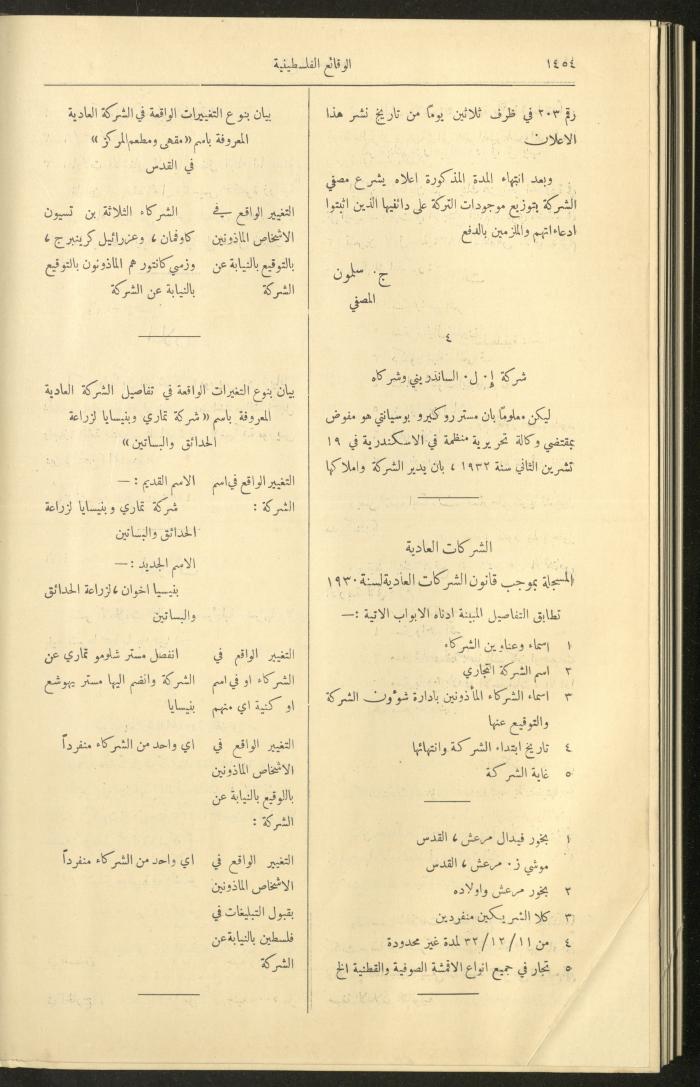 ١٤٥٤
الوقائع الفلسطينية
رقم ٢٠٣ في ظرف ثلاثين يوماً من تاريخ نشر هذا
الاعلان
وبعد انتهاء المدة المذكورة اعلاه يشرع مصفي
الشركة بتوزيع موجودات التركة على دائنيها الذين اثبتوا
ادعاءاتهم والملزمين بالدفع
ج. سلمون
المصفي
٤
شركة إ. ل. السانذريني وشركاه
ليكن معلوماً بان مستر روكنيرو بوسيانتي هو مفوض
بمقتضي وكالة تحريرية منظمة في الاسكندرية في ١٩
تشرين الثاني سنة ١٩٣٢ ، بان يدير الشركة واملاكها
الشركات العادية
المسجلة بموجب قانون الشركات العادية لسنة ١٩٣٠
تطابق التفاصيل المبينة ادناه الابواب الاتية :—
١ اسماء وعناوين الشركاء
٢ اسم الشركة التجاري
٣ اسماء الشركاء المأذونين بادارة شؤون الشركة
والتوقيع عنها
٤ تاريخ ابتداء الشركة وانتهائها
٥ غاية الشركة
١ بخور فيدال مرعش ، القدس
موشي ز. مرعش ، القدس
٢ بخور مرعش واولاده
٣ كلا الشريكين منفردين
٤ من ١١/١٢/٣٢ لمدة غير محدودة
٥ تجار في جميع انواع الاقمشة الصوفية والقطنية الخ
بيان بنوع التغييرات الواقعة في الشركة العادية
المعروفة باسم «مقهى ومطعم المركز»
في القدس
التغيير الواقع في الشركاء الثلاثة بن تسيون
الاشخاص الماذونين كاوفمان ، وعزرائيل كرينبرج ،
بالتوقيع بالنيابة عن وزمي كانتور هم الماذونون بالتوقيع
الشركة بالنيابة عن الشركة
بيان بنوع التغيرات الواقعة في تفاصيل الشركة العادية
المعروفة باسم «شركة تماري وبنيسايا لزراعة
الحدائق والبساتين»
التغيير الواقع في اسم الاسم القديم :—
الشركة : شركة تماري وبنيسايا لزراعة
الحدائق والبساتين
الاسم الجديد :—
بنيسيا اخوان ، لزراعة الحدائق
والبساتين
التغيير الواقع في انفصل مستر شلومو تماري عن
الشركاء او في اسم الشركة وانضم اليها مستر يهوشع
او كنية اي منهم بنيسايا
التغيير الواقع في اي واحد من الشركاء منفرداً
الاشخاص الماذونين
باللوقيع بالنيابة عن
الشركة :
التغيير الواقع في اي واحد من الشركاء منفرداً
الاشخاص الماذونين
بقبول التبليغات في
فلسطين بالنيابة عن
الشركة